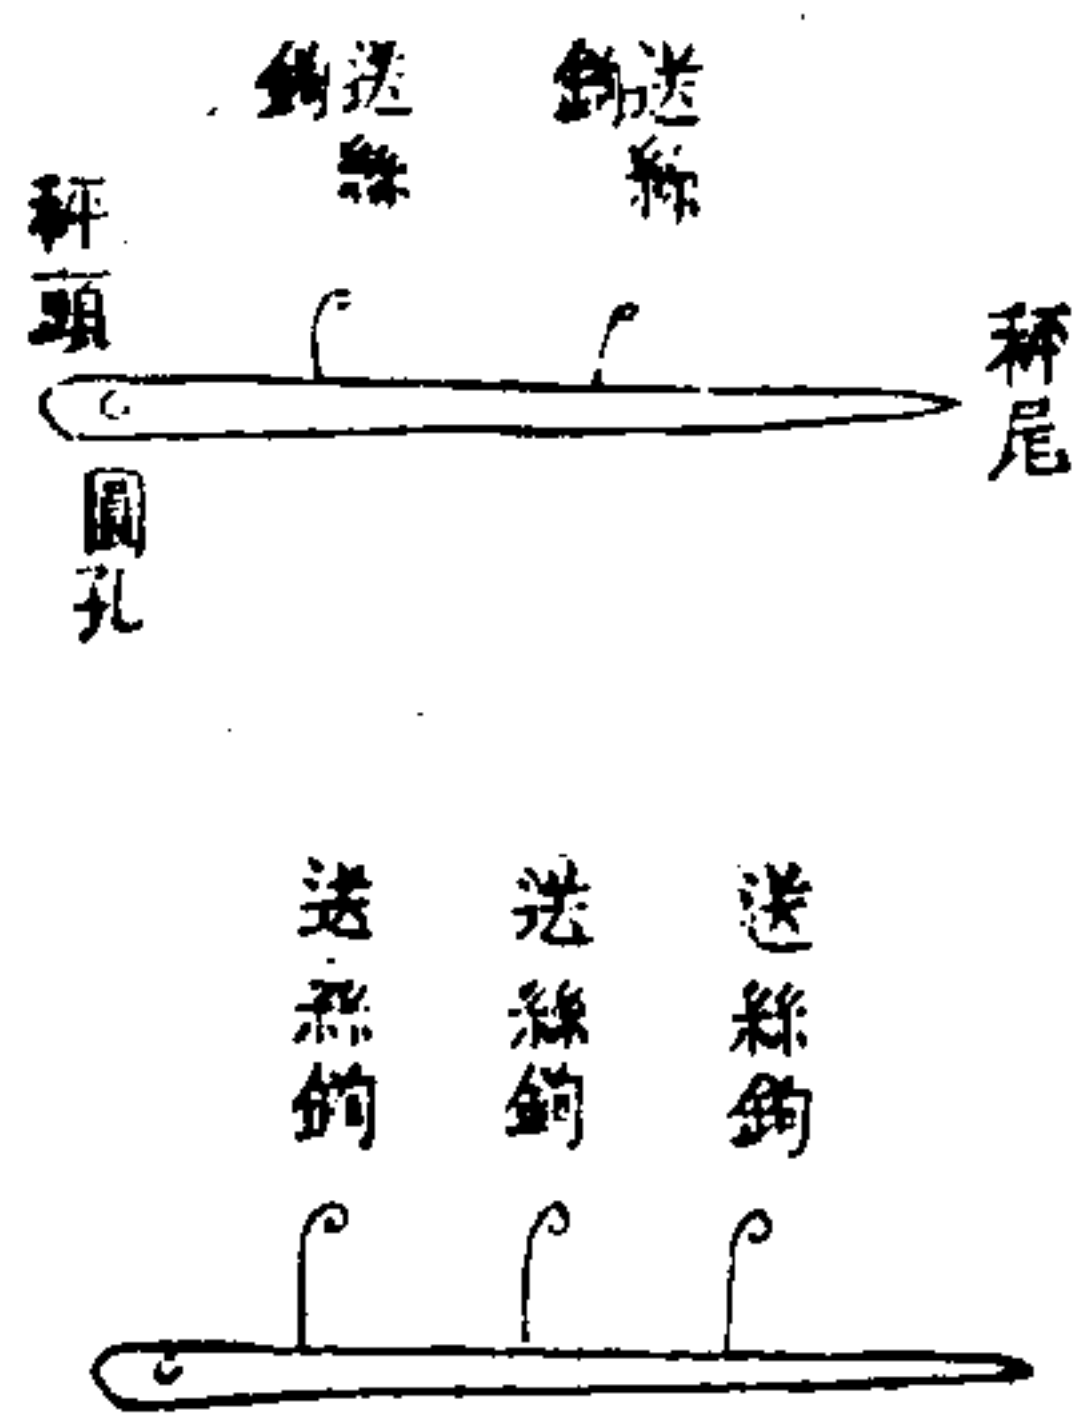 送絲鈎
送絲鈎
秤頭
秤尾
圓孔
送絲鈎
送絲鈎
送絲鈎